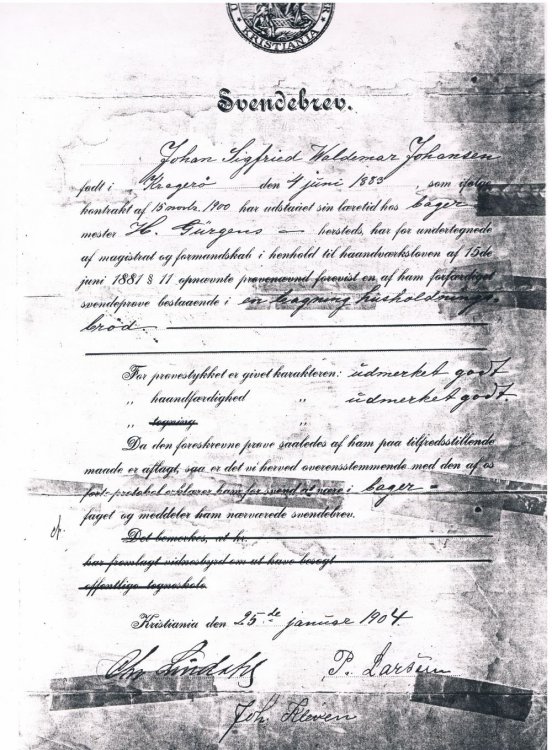 KRISTIANIA
Svendebrev.
Johan Sigfried Waldemar Johansen
født i Kragerø den 4 juni 1883 som ifølge
kontrakt af 15 novbr. 1900 har udstaaet sin læretid hos bager
mester H. Gürgens — hersteds, har for undertegnede
af magistrat og formandskab i henhold til haandværksloven af 15de
juni 1881 § 11 opnævnte prøvenævnd forevist en af ham forfærdiget
svendeprøve bestaaende i en bagning husholdnings-
brød.
For prøvestykket er givet karakteren: udmerket godt
„ haandfærdighed „ udmerket godt
„ tegning „
Da den foreskrevne prøve saaledes af ham paa tilfredsstillende
maade er aflagt, saa er det vi herved overensstemmende med den af os
førte protokol erklærer ham for svend at være i bager-
faget og meddeler ham nærværede svendebrev.
Det bemerkes, at h
har fremlagt vidnesbyrd om at have besøgt
offentlige tegneskole
Kristiania den 25de januar 1904.
Chr Lindahl P. Larsen
Joh. Kleven